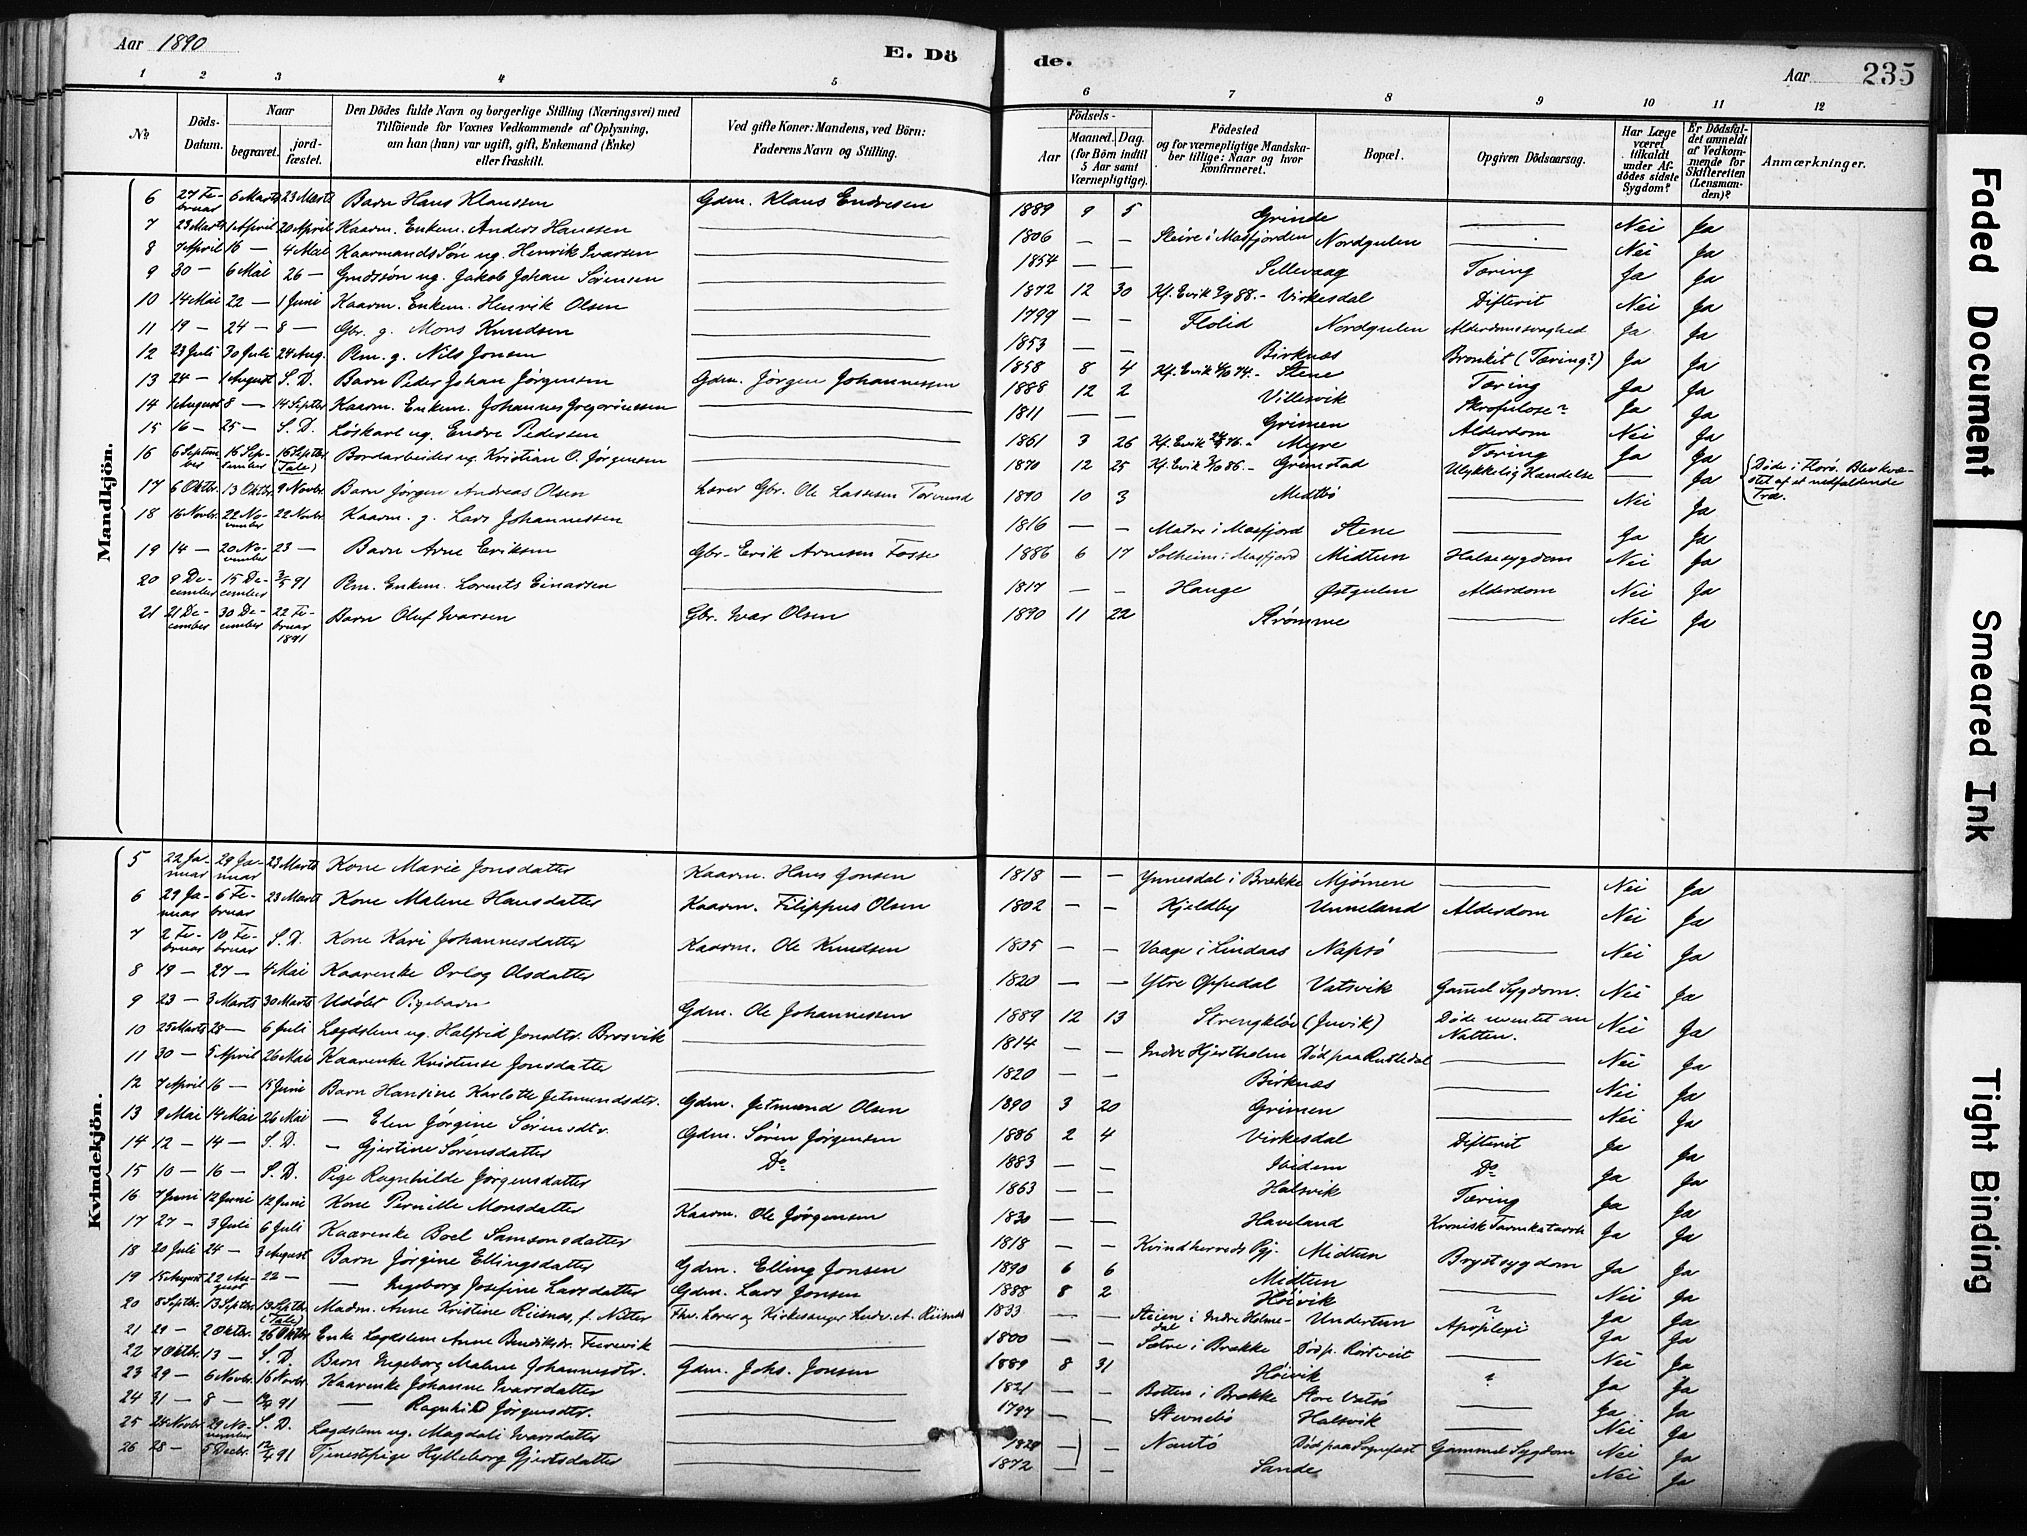 Aar 1890
E. Dö
de.
Aar
235
1 2 3 4 5 6 7 8 9 10 11 12
№
Döds-Datum.
Naar
begravet.
jord-fæstet.
Den Dödes fulde Navn og borgerlige Stilling (Næringsvei) med
Tilföiende for Voxnes Vedkommende af Oplysning,
om han (hun) var ugift, gift, Enkemand (Enke)
eller fraskilt.
Ved gifte Koner: Mandens, ved Börn:
Faderens Navn og Stilling.
Födsels-
Aar
Maaned. Dag.
(for Börn indtil
5 Aar samt
Værnepligtige).
Födested
og for værnepligtige Mandska-
ber tillige: Naar og hvor
konfirmeret.
Bopæl.
Opgiven Dödsaarsag.
Har Læge
været
tilkaldt
under Af-
dödes sidste
Sygdom?
Er Dödsfal-
det anmeldt
af Vedkom-
mende for
Skifteretten
(Lensman-
den)?
Anmærkninger.
Mandkjön.
6 27 Februar 6 Marts 23 Marts Barn Hans Klaussen Gdm. Klaus Endresen 1889 9 5 Grinde — Nei Ja
7 23 Marts 1 April 20 April Kaarm. Enkem. Anders Hanssen — 1806 — — Steire i Masfjorden Nordgulen — Nei Ja
8 7 April 16 — 4 Mai Kaarmands Søn ug. Henrik Ivarsen — 1854 — — Sellevaag Tæring Ja Ja
9 30 — 6 Mai 26 — Gmdssøn ug. Jakob Johan Sørensen — 1872 12 30 Kf. Evik 9/9 88. - Virkesdal Difterit Nei Ja
10 14 Mai 22 — 1 Juni Kaarm. Enkem. Henrik Olsen — 1799 — — Flolid Nordgulen Alderdomssvaghed Ja Ja
11 19 — 24 — 8 — Gbr. g. Mons Knudsen — 1853 — — Birknæs Bronkit (Tæring?) Ja Ja
12 23 Juli 30 Juli 24 Aug. Pm. g. Nils Jonsen — 1858 8 4 Kf. Evik 4/10 74. - Stene Tæring Ja Ja
13 24 — 1 August S. D. Barn Peder Johan Jørgensen Gdm. Jørgen Johannessen 1888 12 2 Villesvik Skrofulose? Ja Ja
14 1 August 8 — 14 Septbr Kaarm. Enkem. Johannes Gregoriussen — 1811 — — Grimen Alderdom Nei Ja
15 16 — 25 — S. D. Løskarl ug. Endre Pedersen — 1861 3 26 Kf. Evik 76. - Myre Tæring Ja Ja
16 6 September 16 September 16 Septbr (Tale) Bordarbeider ug. Kristian O. Jørgensen — 1870 12 25 Kf. Evik 3/10 86. - Grimstad Ulykkelig Hændelse — Ja Døde i Florø. Blev kvæstet af et nedfaldende Træ.
17 6 Oktbr. 13 Oktbr. 9 Novbr. Barn Jørgen Andreas Olsen Lærer Gbr. Ole Lassesen Torsund 1890 10 3 Midtbö — Nei Ja
18 16 Novbr. 22 November 22 Novbr. Kaarm. g. Lars Johannessen — 1816 — — Matre i Masfjord Stene — Ja Ja
19 14 — 20 November 23 — Barn Arne Eriksen Gbr. Erik Arnesen Fosse 1886 6 17 Solheim i Masfjord Midtun Halssygdom Nei Ja
20 9 December 15 December 3/5 91 Pm. Enkem. Lorents Einarsen — 1817 — — Hauge Østgulen Alderdom Nei Ja
21 21 December 30 December 22 Februar 1891 Barn Oluf Ivarsen Gbr. Ivar Olsen 1890 11 22 Strømme — Nei Ja
Kvindekjön.
5 22 Januar 29 Januar 23 Marts Kone Marie Jonsdatter Kaarm. Hans Jonsen 1818 — — Ynnesdal i Brække Mjømen — Nei Ja
6 29 Januar 6 Februar 23 Marts Kone Malene Hansdatter Kaarm. Filippus Olsen 1802 — — Kjeldby Unneland Alderdom Nei Ja
7 2 Februar 10 Februar S. D. Kone Kari Johannesdatter Kaarm. Ole Knudsen 1805 — — Vaage i Lindaas Napsö — Nei Ja
8 19 — 27 — 4 Mai Kaarenke Orlog Olsdatter — 1820 — — Ytre Oppedal Vatsvik Gamel Sygdom. Nei Ja
9 23 — 3 Marts 30 Marts Udøbt Pigebarn Gdm. Ole Johannessen 1889 12 13 Strengkløv (Juvik) Døde uventet om Natten. Nei Ja
10 25 Marts 28 — 6 Juli Lægdslem ug. Halfrid Jonsdtr. Brosvik — 1814 — — Indre Hjertholm Død paa Rutledal — Nei Ja
11 30 — 5 April 26 Mai Kaarenke Kristense Jonsdatter — 1820 — — Birknæs — Nei Ja
12 7 April 16 — 15 Juni Barn Hansine Karlotte Jetmundsdtr. Gdm. Jetmund Olsen 1890 3 20 Grimen — Nei Ja
13 9 Mai 14 Mai 26 Mai — Elen Jørgine Sørensdtr. Gdm. Søren Jørgensen 1886 2 4 Virkesdal Difterit Ja Ja
14 12 — 14 — S. D. — Gjertine Sørensdatter Do 1883 — — Ibidem Do Ja Ja
15 10 — 16 — S. D. Pige Ragnhilde Jørgensdatter — 1863 — — Halsvik Tæring Ja Ja
16 7 Juni 12 Juni 12 Juni Kone Pernille Monsdatter Kaarm. Ole Jørgensen 1830 — — Haveland Kronisk Tarmkatarrh Ja Ja
17 27 — 3 Juli 6 Juli Kaarenke Boel Samsonsdatter — 1818 — — Kvindherreds Pgj. Midtun Brystsygdom Ja Ja
18 20 Juli 24 — 3 August Barn Jørgine Ellingsdatter Gdm. Elling Jonsen 1890 6 6 Midtun Nei Ja
19 15 August 22 August 22 — — Ingeborg Josefine Larsdatter Gdm. Lars Jonsen 1888 8 2 Höivik ? Ja Ja
20 8 Septbr. 13 Septbr 13 Septbr (Tale) Madm. Anne Kristine Riisnes, f. Nitter Fhv. Lærer og Kirkesanger Ludv. A. Riisnes 1833 — — Steien i Indre Holmedal Undertun Apoplexi Ja Ja
21 29 — 2 Oktbr. 26 Oktbr Enke Lægdslem Anne Bendiksdr. — 1800 — — Sætre i Brække Död p. Rörtveit — Nei Ja
22 7 Oktbr. 13 — S. D. Barn Ingeborg Malene Johannesdtr. Gdm. Johs. Jonsen 1889 8 31 Höivik ? Ja Ja
23 29 — 6 Novbr. 16 Novbr. Kaarenke Johanne Ivarsdatter — 1821 — — Botten i Brække Store Vatsö Ja Ja
24 31 — 8 — 91 — Ragnhild Jørgensdtr. — 1797 — — Stevnebö Halsvik — Nei Ja
25 24 Novbr. 29 November S. D. Lægdslem ug. Magdali Ivarsdatter — 1828 — — Nautö Död paa Sognefest Gammel Sygdom Nei Ja
26 28 — 5 Decbr. 12/4 91 Tjenestepige Hylleborg Gjertsdatter — 1872 — — Sande — Nei Ja
Faded Document
Smeared Ink
Tight Binding